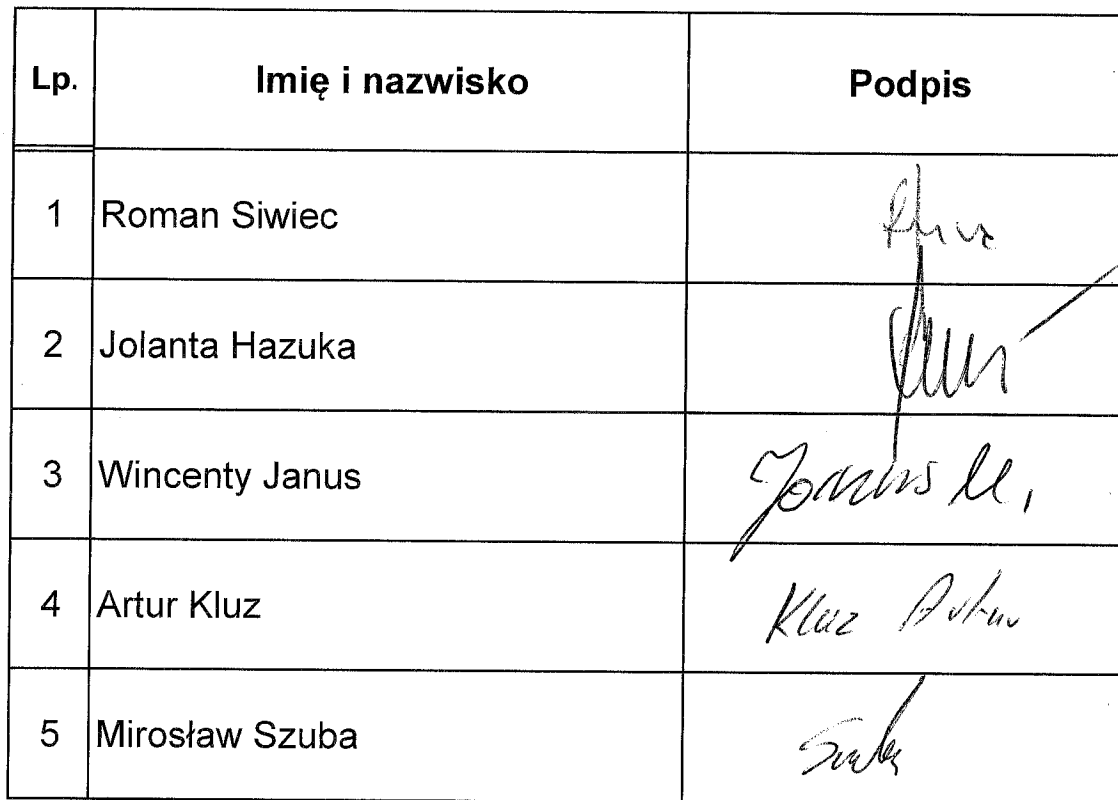 Lp. Imię i nazwisko Podpis
1 Roman Siwiec
2 Jolanta Hazuka
3 Wincenty Janus Janus
4 Artur Kluz Kluz Artur
5 Mirosław Szuba